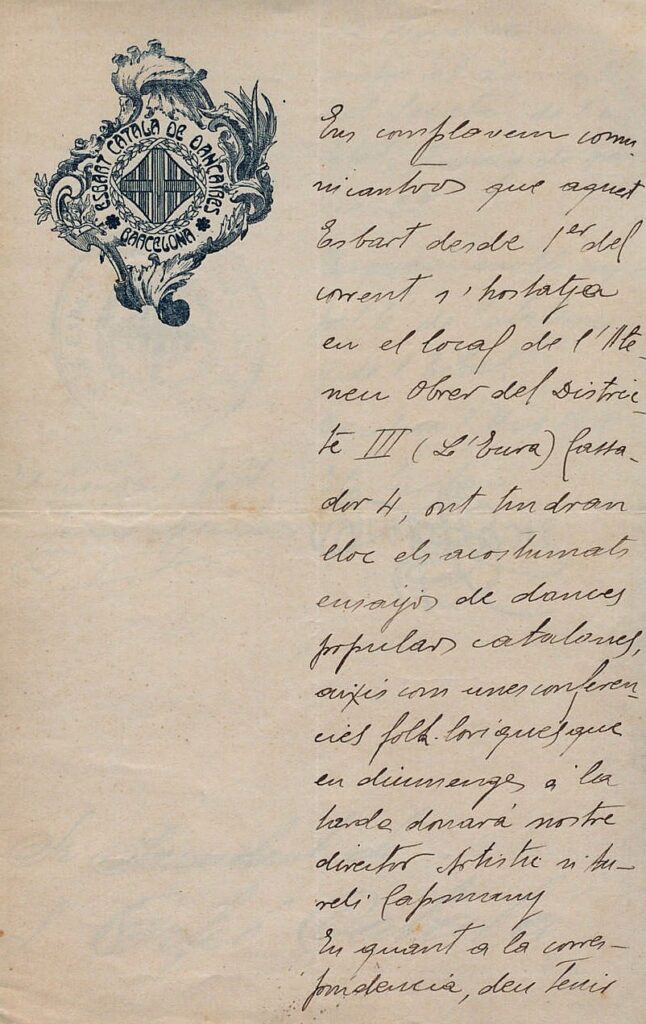 ESBART CATALÀ DE DANÇAIRES
BARCELONA
Ens complavem comu-
nicantvos que aquet
Esbart desde 1er del
corrent s'hostatja
en el local de l'Ate-
neu Obrer del Distric-
te III (L'Eura) Cassa-
dor 4, ont tindran
lloc els acostumats
ensaijos de dances
populars catalanes,
aixis com unes conferen-
cies folk-loriques que
en diumenges a la
tarda donará nostre
director Artistic n'Au-
reli Capmany
En quant a la corres-
pondencia, deu